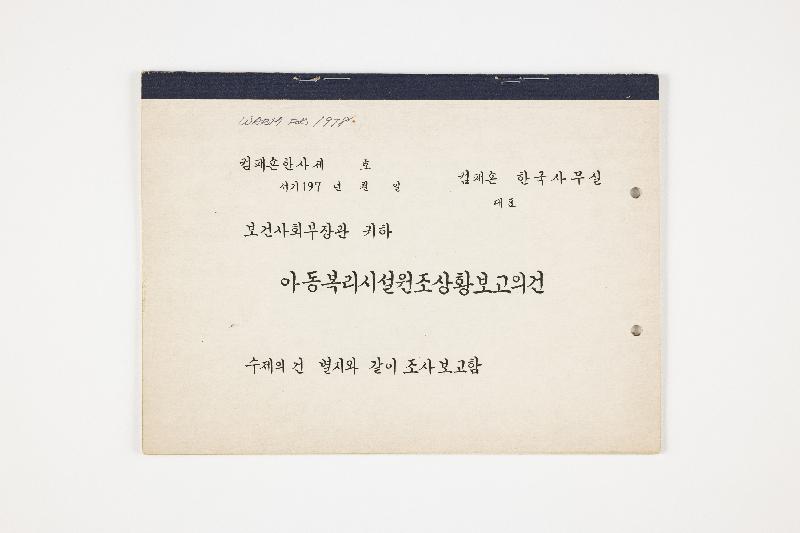 FOR 1978.
컴패숀한사제 호
서기197 년 월 일
컴패숀 한국사무실
대표
보건사회부장관 귀하
아동복리시설원조상황보고의건
수제의 건 별지와 같이 조사보고함